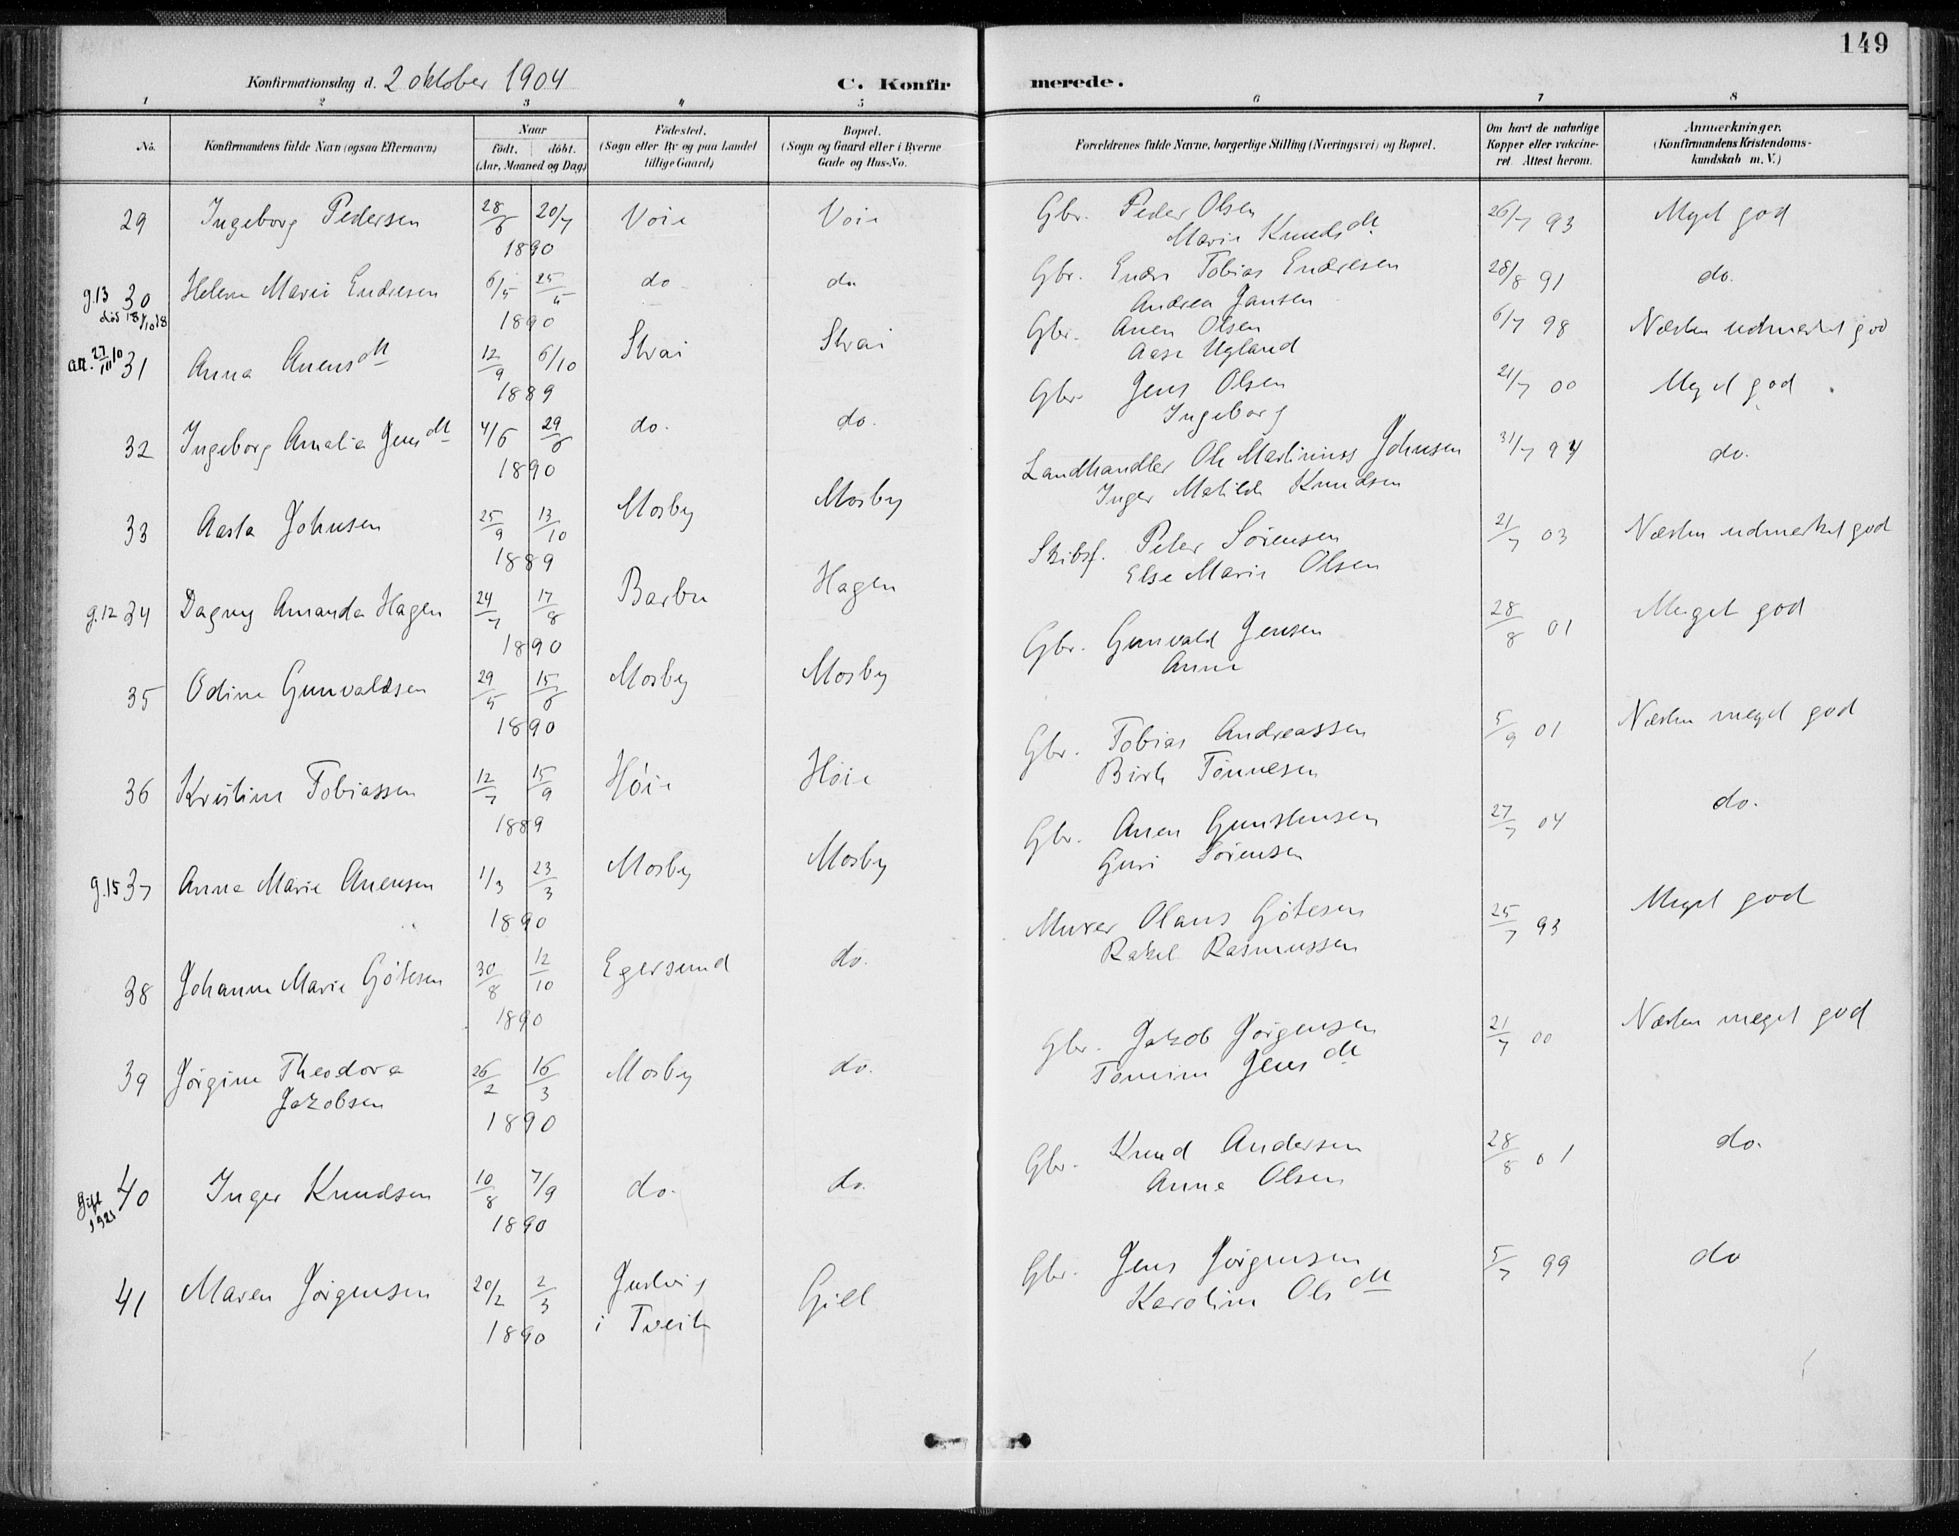 149
Konfirmationsdag d. 2 oktober 1904 C. Konfirmerede.
1 2 3 4 5 6 7 8
No. Konfirmandens fulde Navn (ogsaa Efternavn) Naar født. døbt. (Aar, Maaned og Dag) Fødested. (Sogn eller By og paa Landet tillige Gaard) Bopæl. (Sogn og Gaard eller i Byerne Gade og Hus-No. Forældrenes fulde Navne, borgerlige Stilling (Næringsvei) og Bopæl. Om havt de naturlige Kopper eller vakcineret. Attest herom. Anmærkninger. (Konfirmandens Kristendomskundskab m. V.)
29 Ingeborg Pedersen 28/6 20/7 1890 Voie Voie Gbr. Peder Olsen Marie Knudsdtt 26/7 93 Meget god
g.13 30 død 18/10 18 Helene Marie Endresen 6/5 25/5 1890 do do Gbr. Endre Tobias Endresen Andrea Jansen 28/8 91 do.
att. 27/III 10 31 Anna Anensdtt 12/9 6/10 1889 Strai Strai Gbr. Anen Olsen Aase Ugland 6/7 98 Næsten udmerket god
32 Ingeborg Amalie Jensdtt 4/6 29/6 1890 do. do. Gbr. Jens Olsen Ingeborg 21/7 00 Meget god
33 Aasta Johnsen 25/9 13/10 1889 Mosby Mosby Landhandler Ole Martinius Johnsen Inger Matilde Knudsen 31/7 94 do.
g.12 34 Dagny Amanda Hagen 24/7 17/8 1890 Barbu Hagen Skibsf. Peter Sørensen Else Marie Olsen 21/7 03 Næsten udmerket god
35 Odine Gunvaldsen 29/5 15/6 1890 Mosby Mosby Gbr. Gunvald Jensen Anne 28/8 01 Meget god
36 Kristine Tobiassen 12/7 15/9 1889 Høie Høie Gbr. Tobias Andreassen Birte Tønnesen 5/9 01 Næsten meget god
g.15 37 Anna Marie Anensen 1/3 23/3 1890 Mosby Mosby Gbr. Anen Gunstensen Guri Sørensen 27/7 04 do.
38 Johanne Marie Gøtesen 30/8 12/10 1890 Egersund do. Murer Olaus Gøtesen Rakel Rasmussen 25/7 93 Meget god
39 Jørgine Theodora Jakobsen 26/2 16/3 1890 Mosby do. Gbr. Jakob Jørgensen Tomine Jensdtt 21/7 00 Næsten meget god
Gift 1921 40 Inger Knudsen 10/8 7/9 1890 do. do. Gbr. Knud Andersen Anne Olsen 28/8 01 do.
41 Maren Jørgensen 20/2 2/3 1890 i Tveit Gill Gbr. Jens Jørgensen Karoline Olsdtt 5/7 99 do